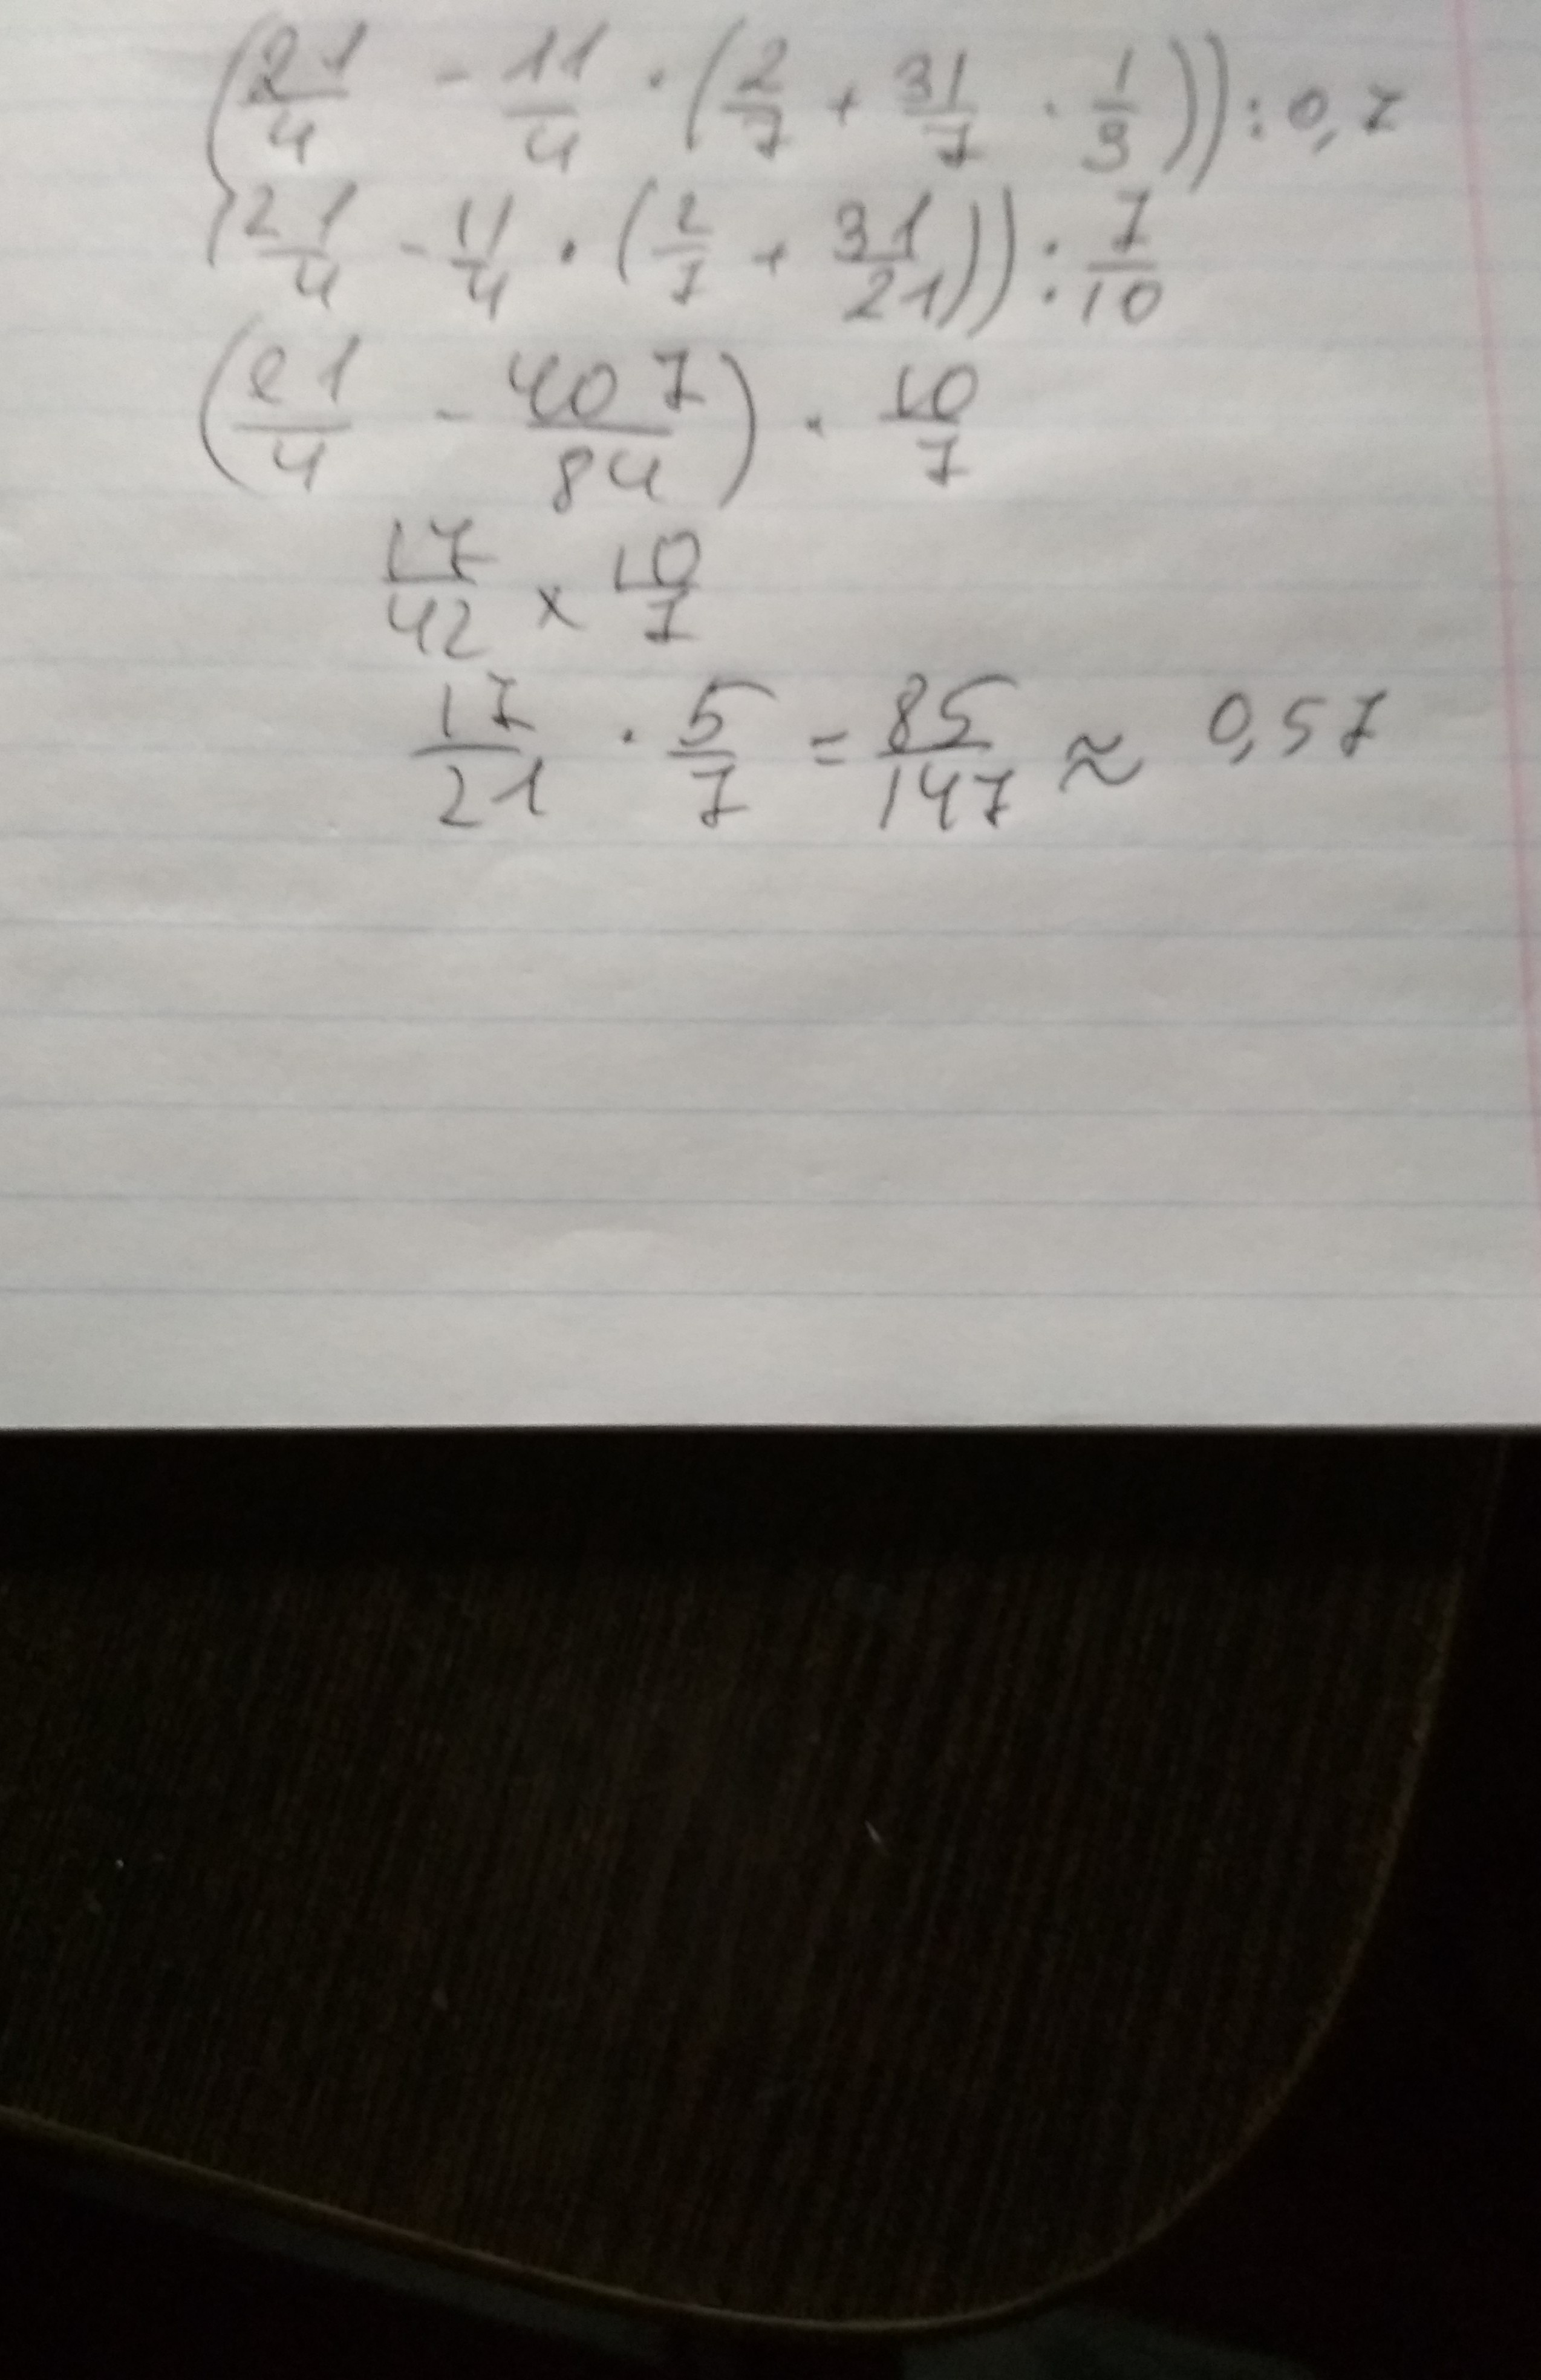 (21/4 - 11/4 · (2/7 + 31/7 · 1/3)) : 0,7
(21/4 - 11/4 · (2/7 + 31/21)) : 7/10
(21/4 - 407/84) · 10/7
17/42 × 10/7
17/21 · 5/7 = 85/147 ≈ 0,57